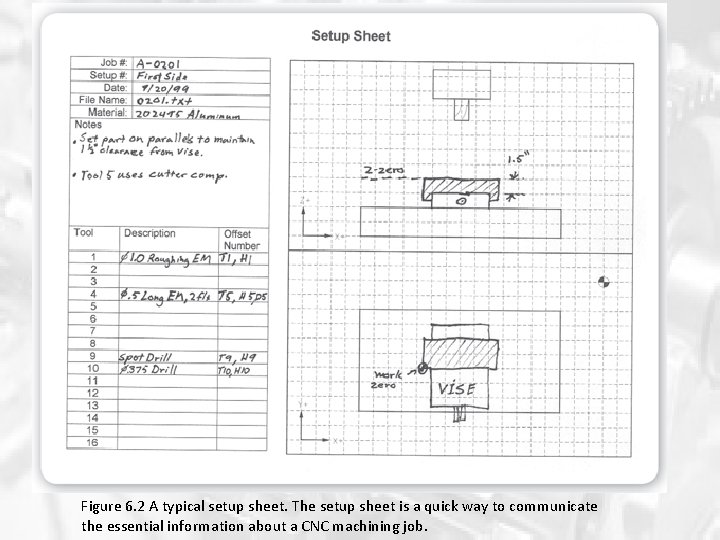 Setup Sheet
Job #: A-0201
Setup #: First Side
Date: 9/20/99
File Name: 0201.txt
Material: 2024T5 Aluminum
Notes
• Set part on parallels to maintain
1½" clearance from vise.
• Tool 5 uses cutter comp.
Tool Description Offset Number
1 Ø1.0 Roughing EM T1, H1
2
3
4 Ø.5 Long EM, 2 fls T5, H5, D5
5
6
7
8
9 Spot Drill T9, H9
10 Ø.375 Drill T10, H10
11
12
13
14
15
16
1.5"
Z-zero
Z+
X+
work
zero
VISE
Y+
X+
Figure 6.2 A typical setup sheet. The setup sheet is a quick way to communicate
the essential information about a CNC machining job.